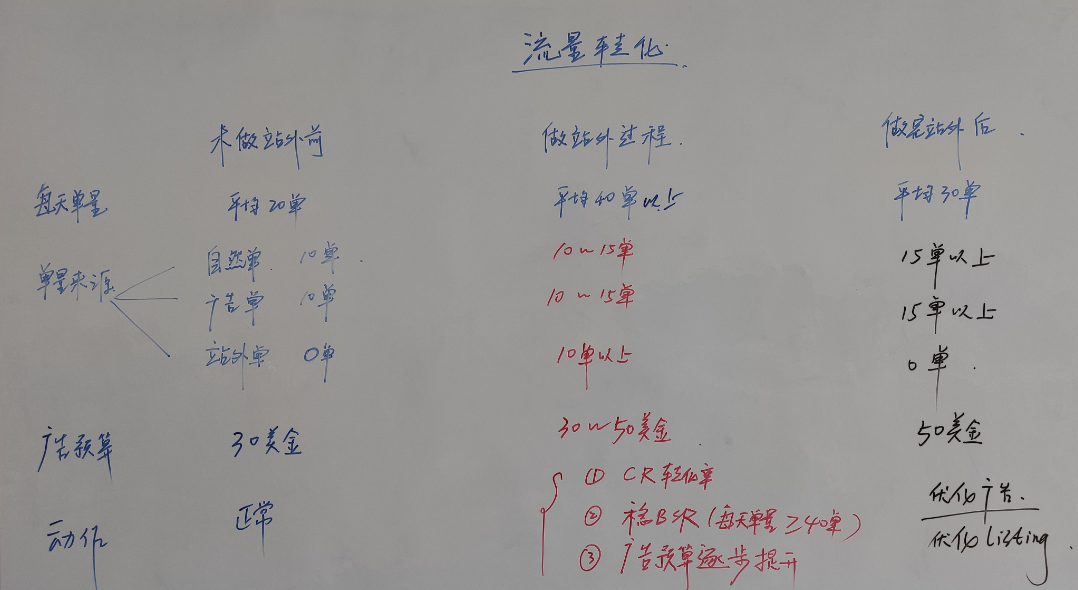 流量转化.
未做站外前 做站外过程. 做完站外后.
每天单量 平均20单 平均40单以上 平均30单
单量来源 自然单. 10单. 10~15单 15单以上
广告单 10单 10~15单 15单以上
站外单 0单 10单以上 0单.
广告预算 30美金 30~50美金. 50美金
动作 正常 ① CR转化率 优化广告.
② 稳BSR(每天单量≥40单) 优化listing.
③ 广告预算逐步提升